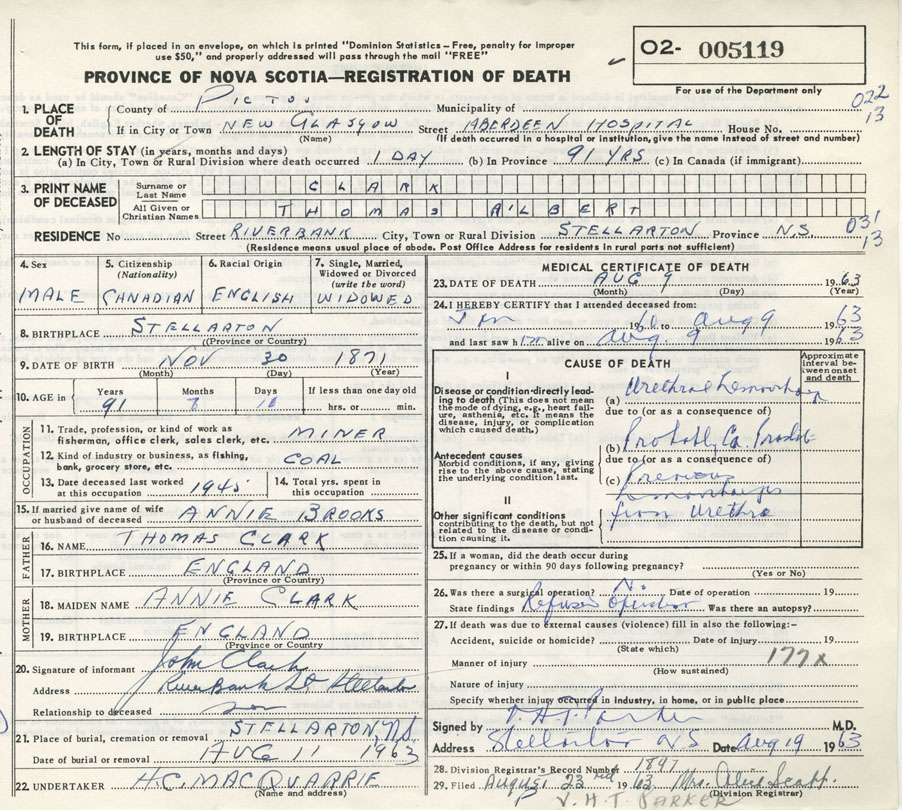 This form, if placed in an envelope, on which is printed "Dominion Statistics – Free, penalty for improper
use $50," and properly addressed will pass through the mail "FREE"
PROVINCE OF NOVA SCOTIA—REGISTRATION OF DEATH
O2- 005119
For use of the Department only
022
13
1. PLACE OF DEATH
County of PICTOU Municipality of
If in City or Town NEW GLASGOW Street ABERDEEN HOSPITAL House No.
(Name) (If death occurred in a hospital or institution, give the name instead of street and number)
2. LENGTH OF STAY (in years, months and days)
(a) In City, Town or Rural Division where death occurred 1 DAY (b) In Province 91 YRS (c) In Canada (if immigrant)
3. PRINT NAME OF DECEASED
Surname or Last Name CLARK
All Given or Christian Names THOMAS ALBERT
RESIDENCE No Street RIVERBANK City, Town or Rural Division STELLARTON Province N.S. 031
13
(Residence means usual place of abode. Post Office Address for residents in rural parts not sufficient)
4. Sex MALE
5. Citizenship (Nationality) CANADIAN
6. Racial Origin ENGLISH
7. Single, Married, Widowed or Divorced (write the word) WIDOWED
8. BIRTHPLACE STELLARTON
(Province or Country)
9. DATE OF BIRTH NOV 30 1871
(Month) (Day) (Year)
10. AGE in Years Months Days If less than one day old
91 8 10 hrs. or min.
OCCUPATION
11. Trade, profession, or kind of work as
fisherman, office clerk, sales clerk, etc. MINER
12. Kind of industry or business, as fishing,
bank, grocery store, etc. COAL
13. Date deceased last worked
at this occupation 1945
14. Total yrs. spent in
this occupation
15. If married give name of wife
or husband of deceased ANNIE BROOKS
FATHER
16. NAME THOMAS CLARK
17. BIRTHPLACE ENGLAND
(Province or Country)
MOTHER
18. MAIDEN NAME ANNIE CLARK
19. BIRTHPLACE ENGLAND
(Province or Country)
20. Signature of informant John Clark
Address River Bank St Stellarton
Relationship to deceased son
21. Place of burial, cremation or removal STELLARTON, N.S.
Date of burial or removal AUG 11 1963
22. UNDERTAKER H.C. MACQUARRIE
(Name and address)
MEDICAL CERTIFICATE OF DEATH
23. DATE OF DEATH AUG 9 1963
(Month) (Day) (Year)
24. I HEREBY CERTIFY that I attended deceased from:
Jan 1960 to aug 9 1963
and last saw him alive on aug. 9 1963
CAUSE OF DEATH
Approximate interval between onset and death
I
Disease or condition directly leading to death (This does not mean the mode of dying, e.g., heart failure, asthenia, etc. It means the disease, injury, or complication which caused death.)
(a) Urethral hemorrhage
due to (or as a consequence of)
Antecedent causes
Morbid conditions, if any, giving rise to the above cause, stating the underlying condition last.
(b) Ca.
due to (or as a consequence of)
(c) Previous
hemorrhages
from Urethra
II
Other significant conditions
contributing to the death, but not related to the disease or condition causing it.
25. If a woman, did the death occur during
pregnancy or within 90 days following pregnancy?
(Yes or No)
26. Was there a surgical operation? No Date of operation 19
State findings Refused Operation Was there an autopsy?
27. If death was due to external causes (violence) fill in also the following:–
Accident, suicide or homicide? Date of injury 19
(State which)
Manner of injury 177x
(How sustained)
Nature of injury
Specify whether injury occurred in industry, in home, or in public place
Signed by V. H. T. Parker M.D.
Address Stellarton NS Date Aug 19 1963
28. Division Registrar's Record Number 1897
29. Filed August 23rd 1963 Mrs.
(Division Registrar)
V. H. T. PARKER